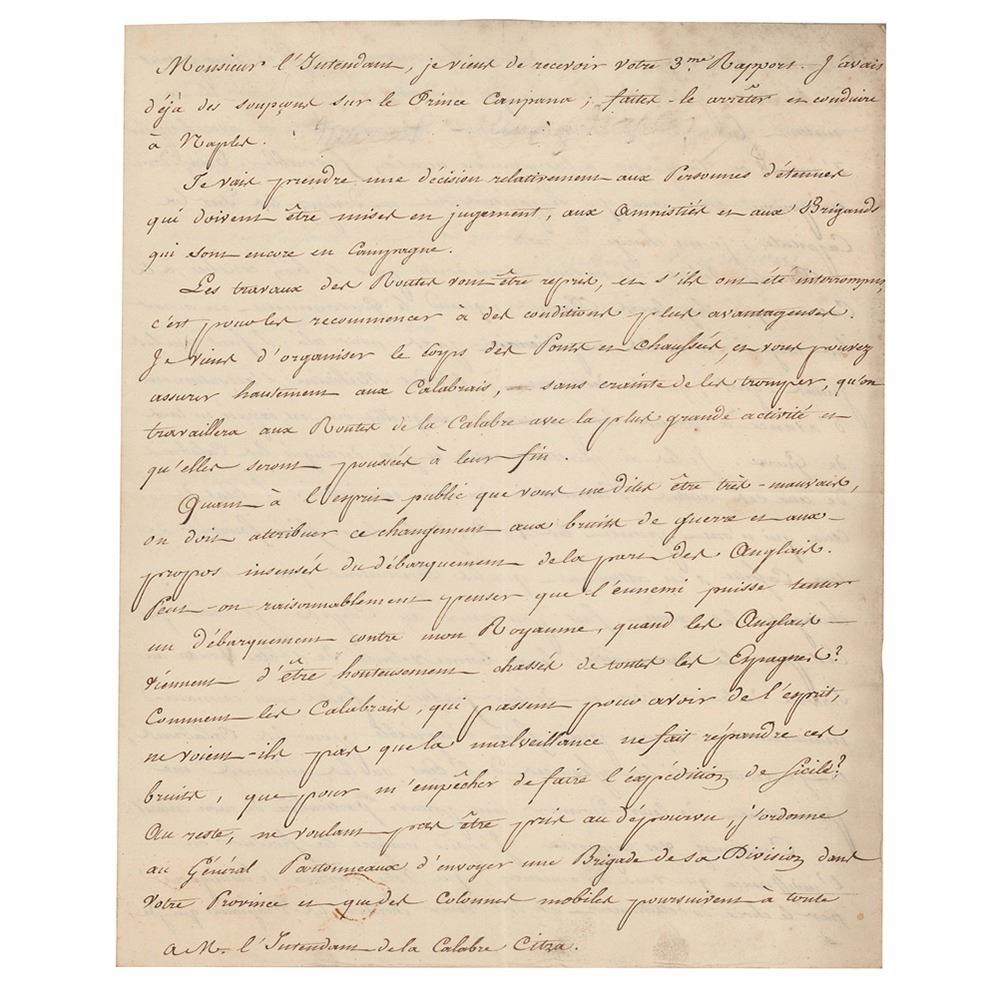 Monsieur l'Intendant, je viens de recevoir votre 3.me Rapport. J'avais
déjà des soupçons sur le Prince Campana ; faites-le arrêter et conduire
à Naples.
Je vais prendre une décision relativement aux Personnes détenues
qui doivent être mises en jugement, aux Amnistiés et aux Brigands
qui sont encore en Campagne.
Les travaux des Routes vont être repris, et s'ils ont été interrompus,
c'est pour les recommencer à des conditions plus avantageuses.
Je viens d'organiser le Corps des Ponts et chaussées, et vous pouvez
assurer hautement aux Calabrais, sans crainte de les tromper, qu'on
travaillera aux Routes de la Calabre avec la plus grande activité et
qu'elles seront poussées à leur fin.
Quant à l'esprit public que vous me dites être très-mauvais,
on doit attribuer ce changement aux bruits de guerre et aux
propos insensés du débarquement de la part des Anglais.
Peut-on raisonnablement penser que l'ennemi puisse tenter
un débarquement contre mon Royaume, quand les Anglais
viennent d'être honteusement chassés de toutes les Espagnes?
Comment les Calabrais, qui passent pour avoir de l'esprit,
ne voient-ils pas que la malveillance ne fait répandre ces
bruits, que pour m'empêcher de faire l'expédition de Sicile?
Au reste, ne voulant pas être pris au dépourvu, j'ordonne
au Général Partonneaux d'envoyer une Brigade de sa Division dans
votre Province et que des Colonnes mobiles poursuivent à toute
A Mr. l'Intendant de la Calabre Citra.